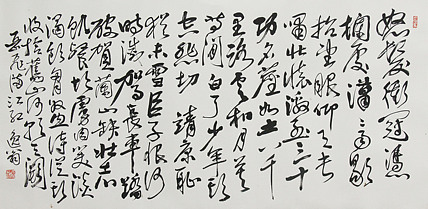 怒髮衝冠憑
欄處瀟瀟雨歇
抬望眼仰天長
嘯壯懷激烈三十
功名塵與土八千
里路雲和月莫
等閒白了少年頭
空悲切靖康恥
猶未雪臣子恨何
時滅駕長車踏
破賀蘭山缺壯志
飢餐胡虜肉笑談
渴飲匈奴血待從頭
收拾舊山河朝天闕
岳飛滿江紅